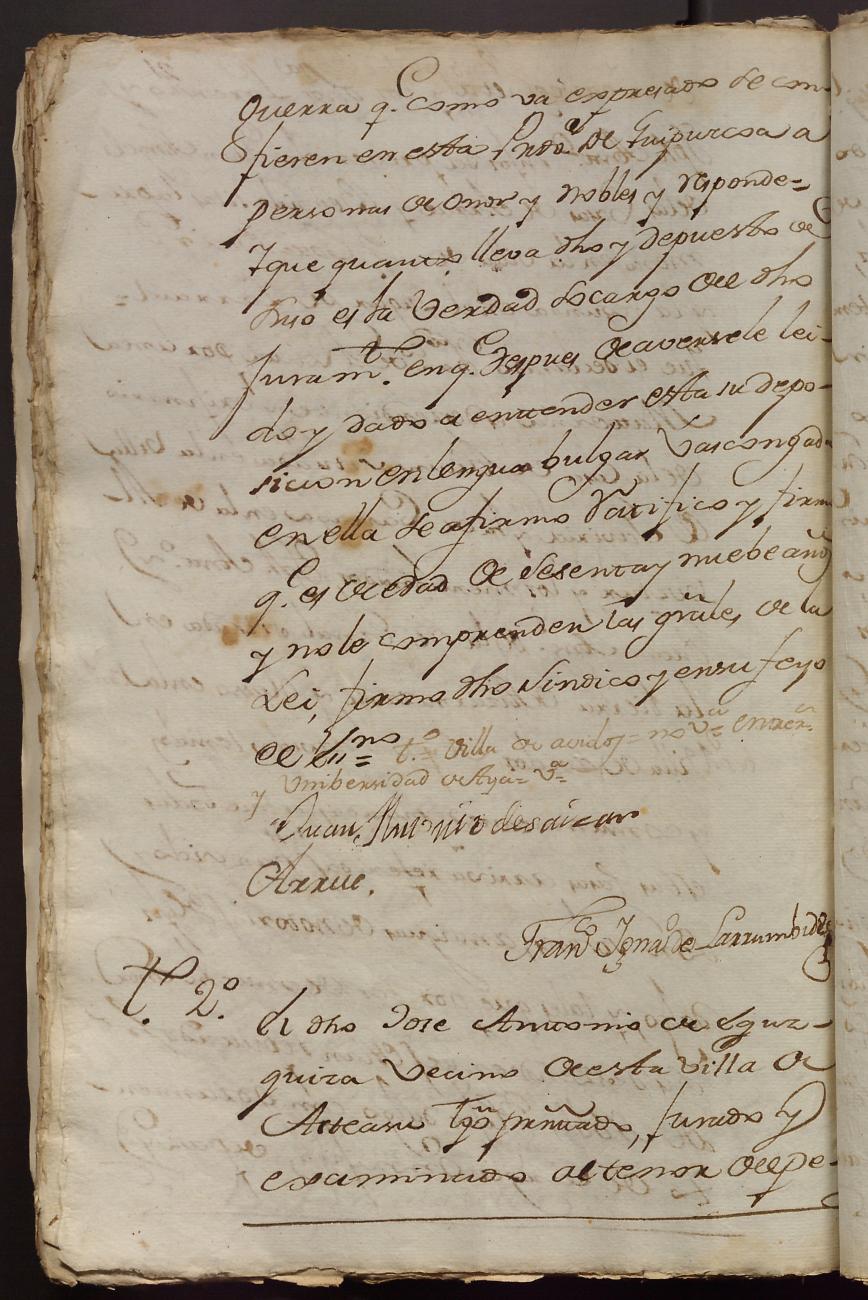 Guerra q.e como va expresado se con
fieren en esta Prov.a de Guipuzcoa a
personas de onor y nobles y responde=
Y que quanto lleva dho y depuesto de
suso es la Verdad so cargo del dho
Juram.to en q.e despues de averse le lei
do y dado a entender esta su depo-
sicion en lengua bulgar Vascongad
en ella se afirmo Ratifico y firm
q.e es de edad de sesenta y nuebe años
y no le comprenden las grâles de la
Lei, firmo dho Sindico y en su fe yo
el Ess.no= t.do villa de = no v.a =
y Unibersidad de Aya= v.a
Juan Antonio de saizar
Arrue.
Fran.co Igna.o de Larrumbide
t.o 2.o el dho Jose Antonio de Eguz-
quiza Vecino de esta Villa de
Asteasu tgo presentado, jurado y
examinado al tenor del pe-